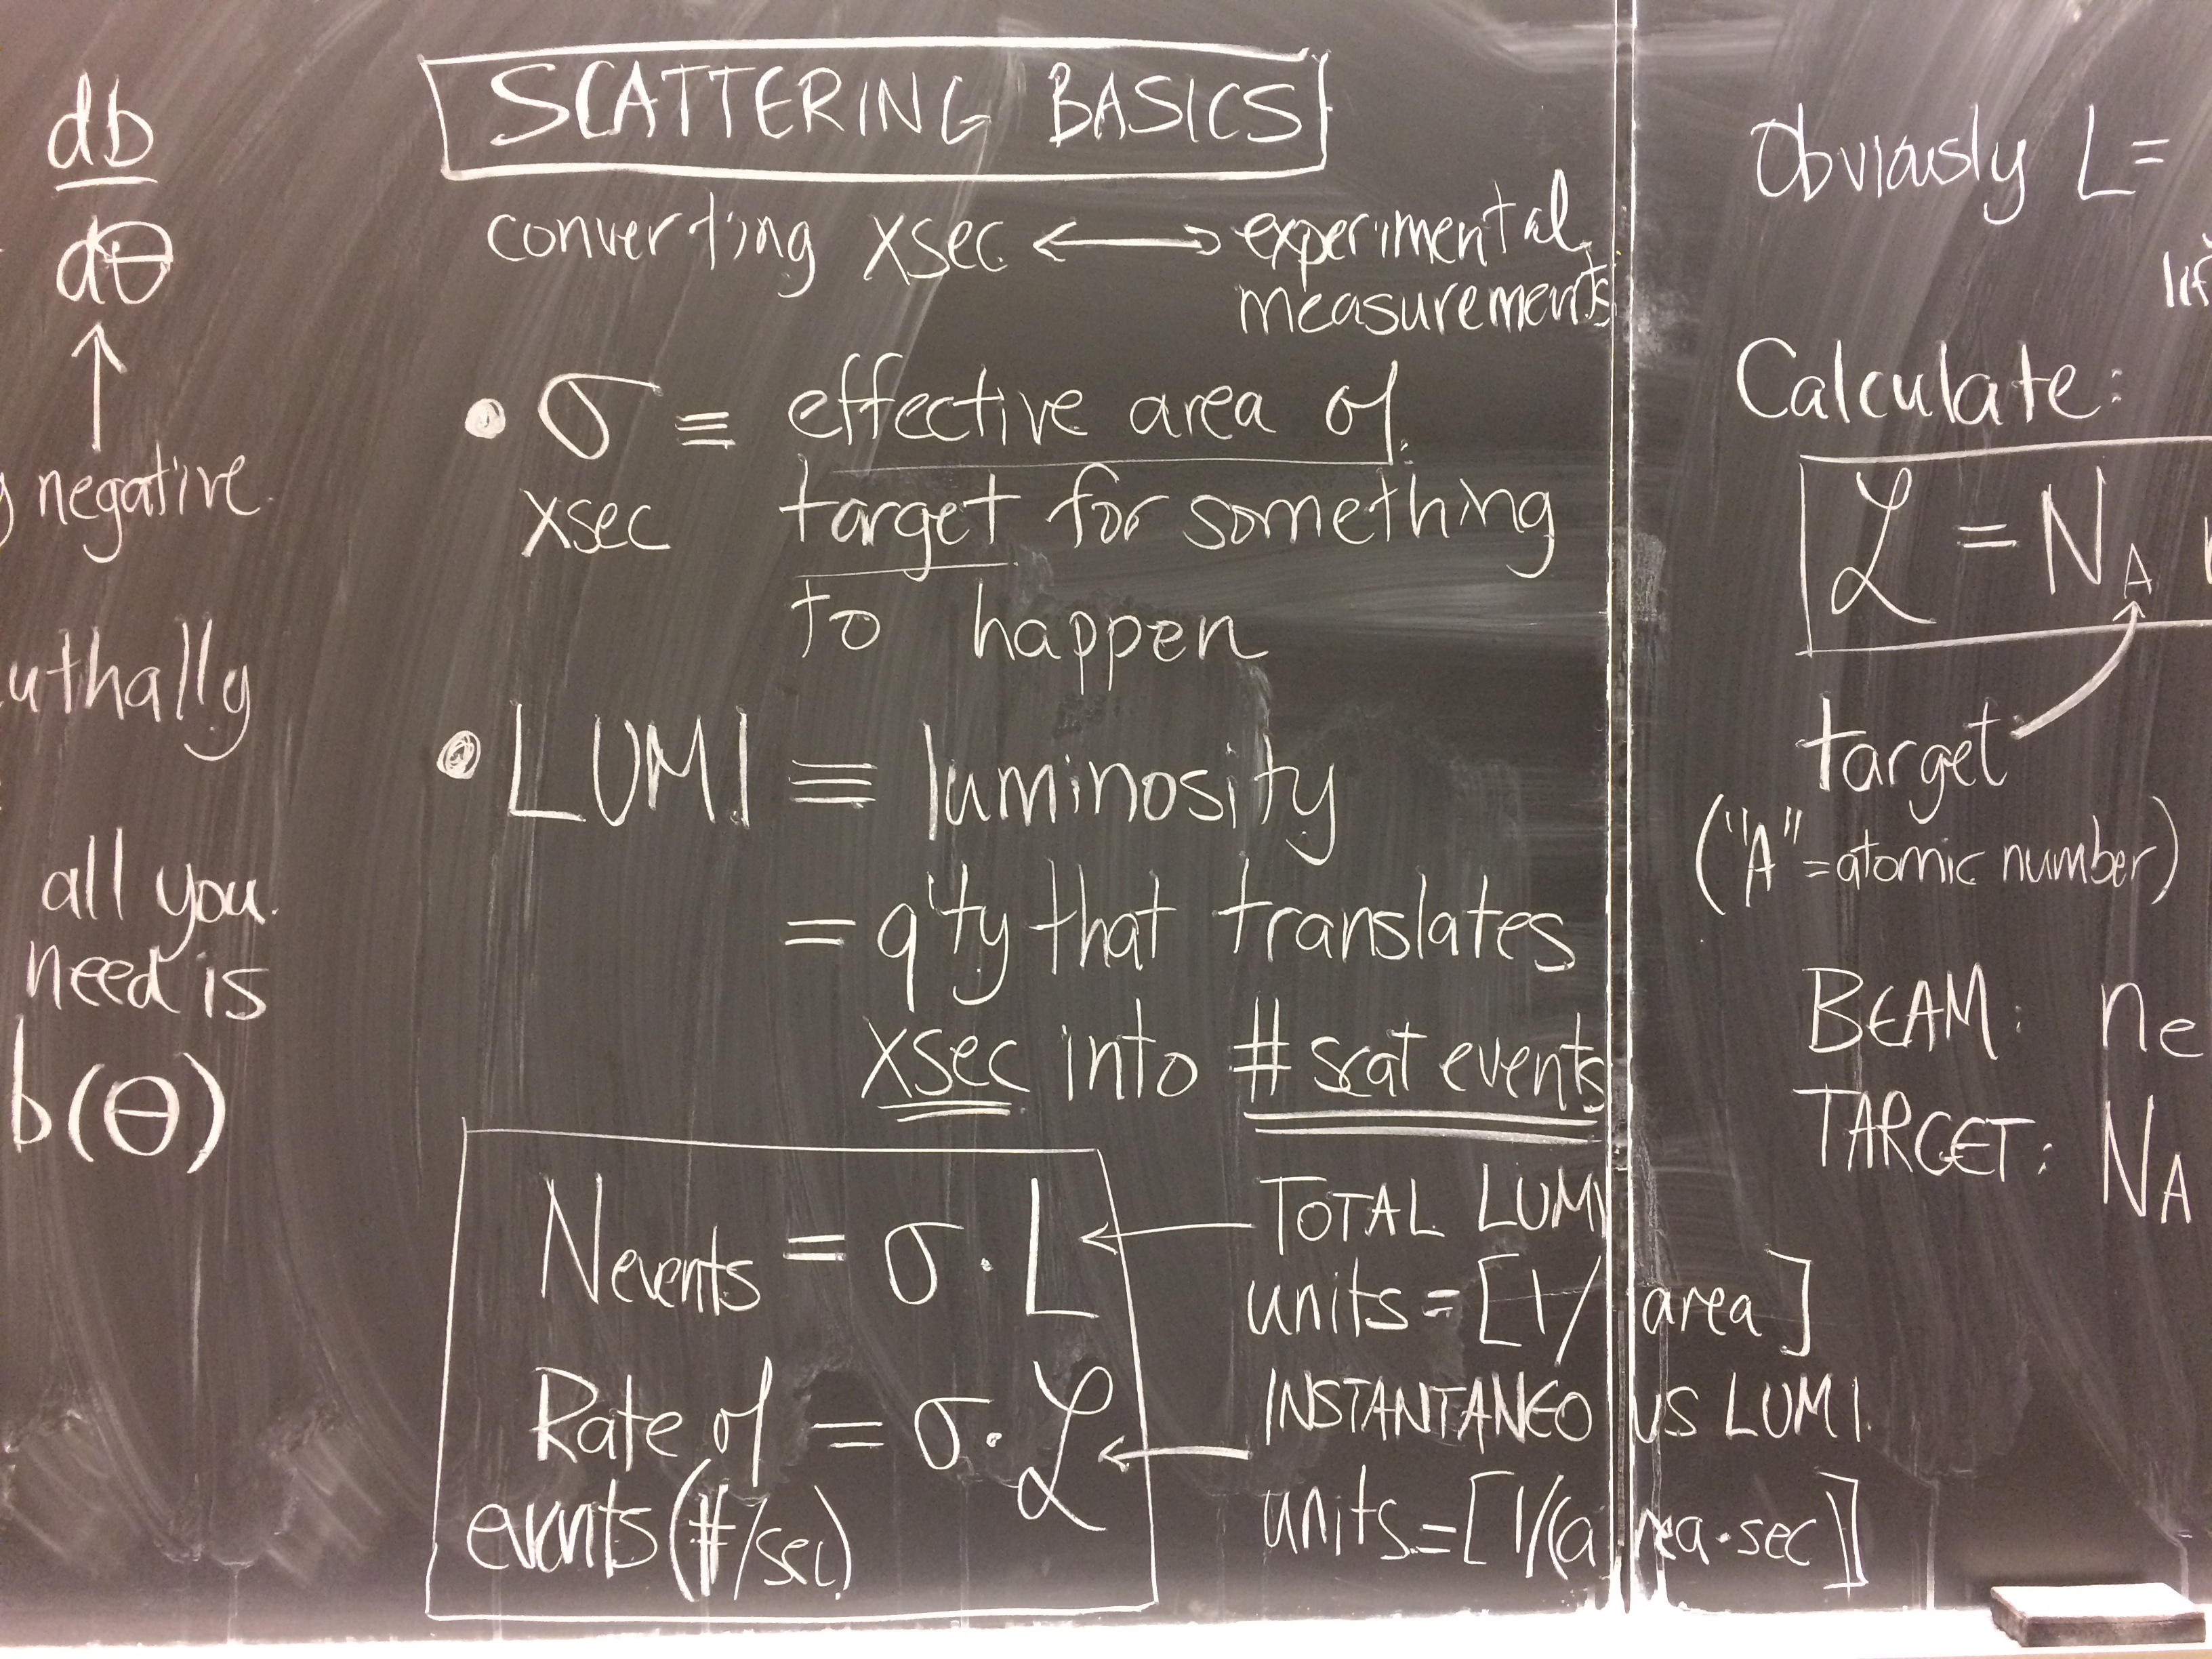 db
dθ
negative
all you
need is
b(θ)
SCATTERING BASICS
converting xsec ⟷ experimental
measurements
• σ ≡ effective area of
xsec target for something
to happen
• LUMI ≡ luminosity
= q'ty that translates
xsec into # scat events
Nevents = σ · L ← TOTAL LUMI
units = [1/area]
Rate of = σ · ℒ ← INSTANTANEOUS LUMI
events (#/sec)
units = [1/(area·sec)]
Obviously L =
Calculate:
ℒ = N_A
target
("A" = atomic number)
BEAM: ne
TARGET: N_A